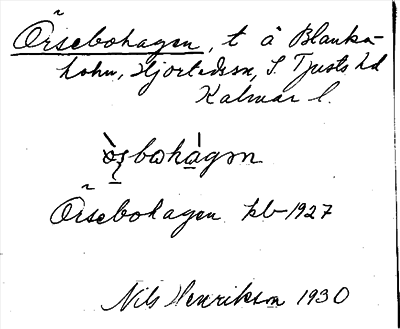 Örsebohagen, t å Blanka-
holm, Hjorteds sn, S. Tjusts hd
Kalmar l.
Örsebohagen kb 1927
Nils Henrikson 1930